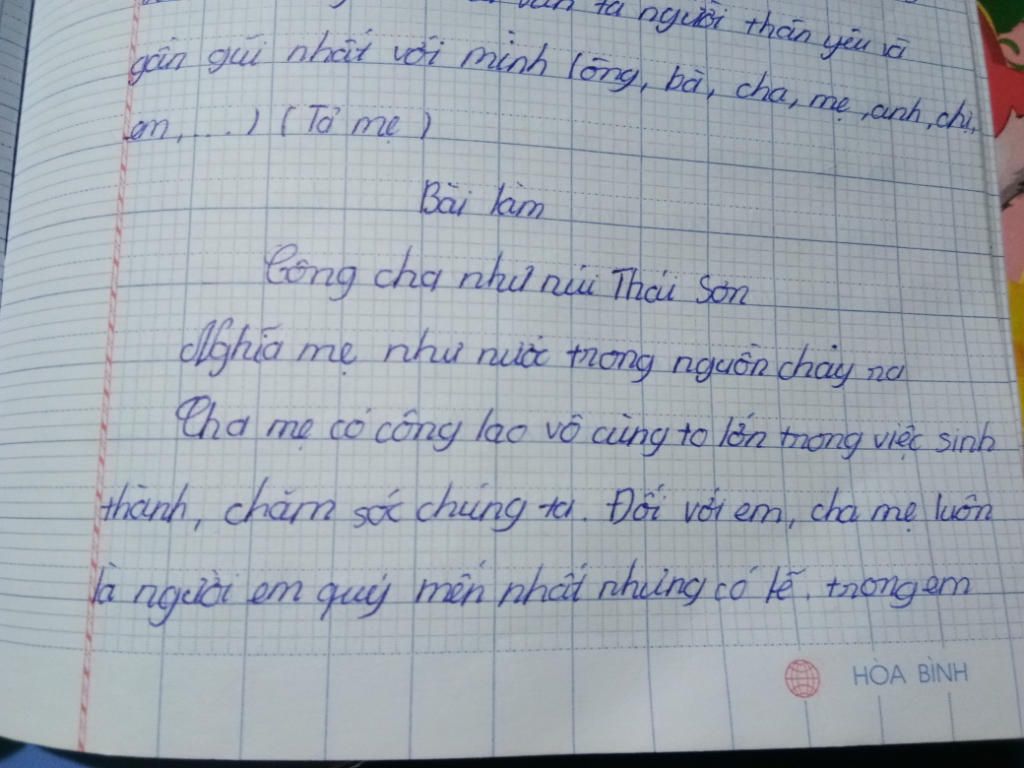 văn tả người thân yêu và
gần gũi nhất với mình (ông, bà, cha, mẹ, anh, chị,
em, ...) (Tả mẹ)
Bài làm
Công cha như núi Thái Sơn
Nghĩa mẹ như nước trong nguồn chảy na
Cha mẹ có công lao vô cùng to lớn trong việc sinh
thành, chăm sóc chúng ta. Đối với em, cha mẹ luôn
là người em quý mến nhất nhưng có lẽ, trong em
HÒA BÌNH